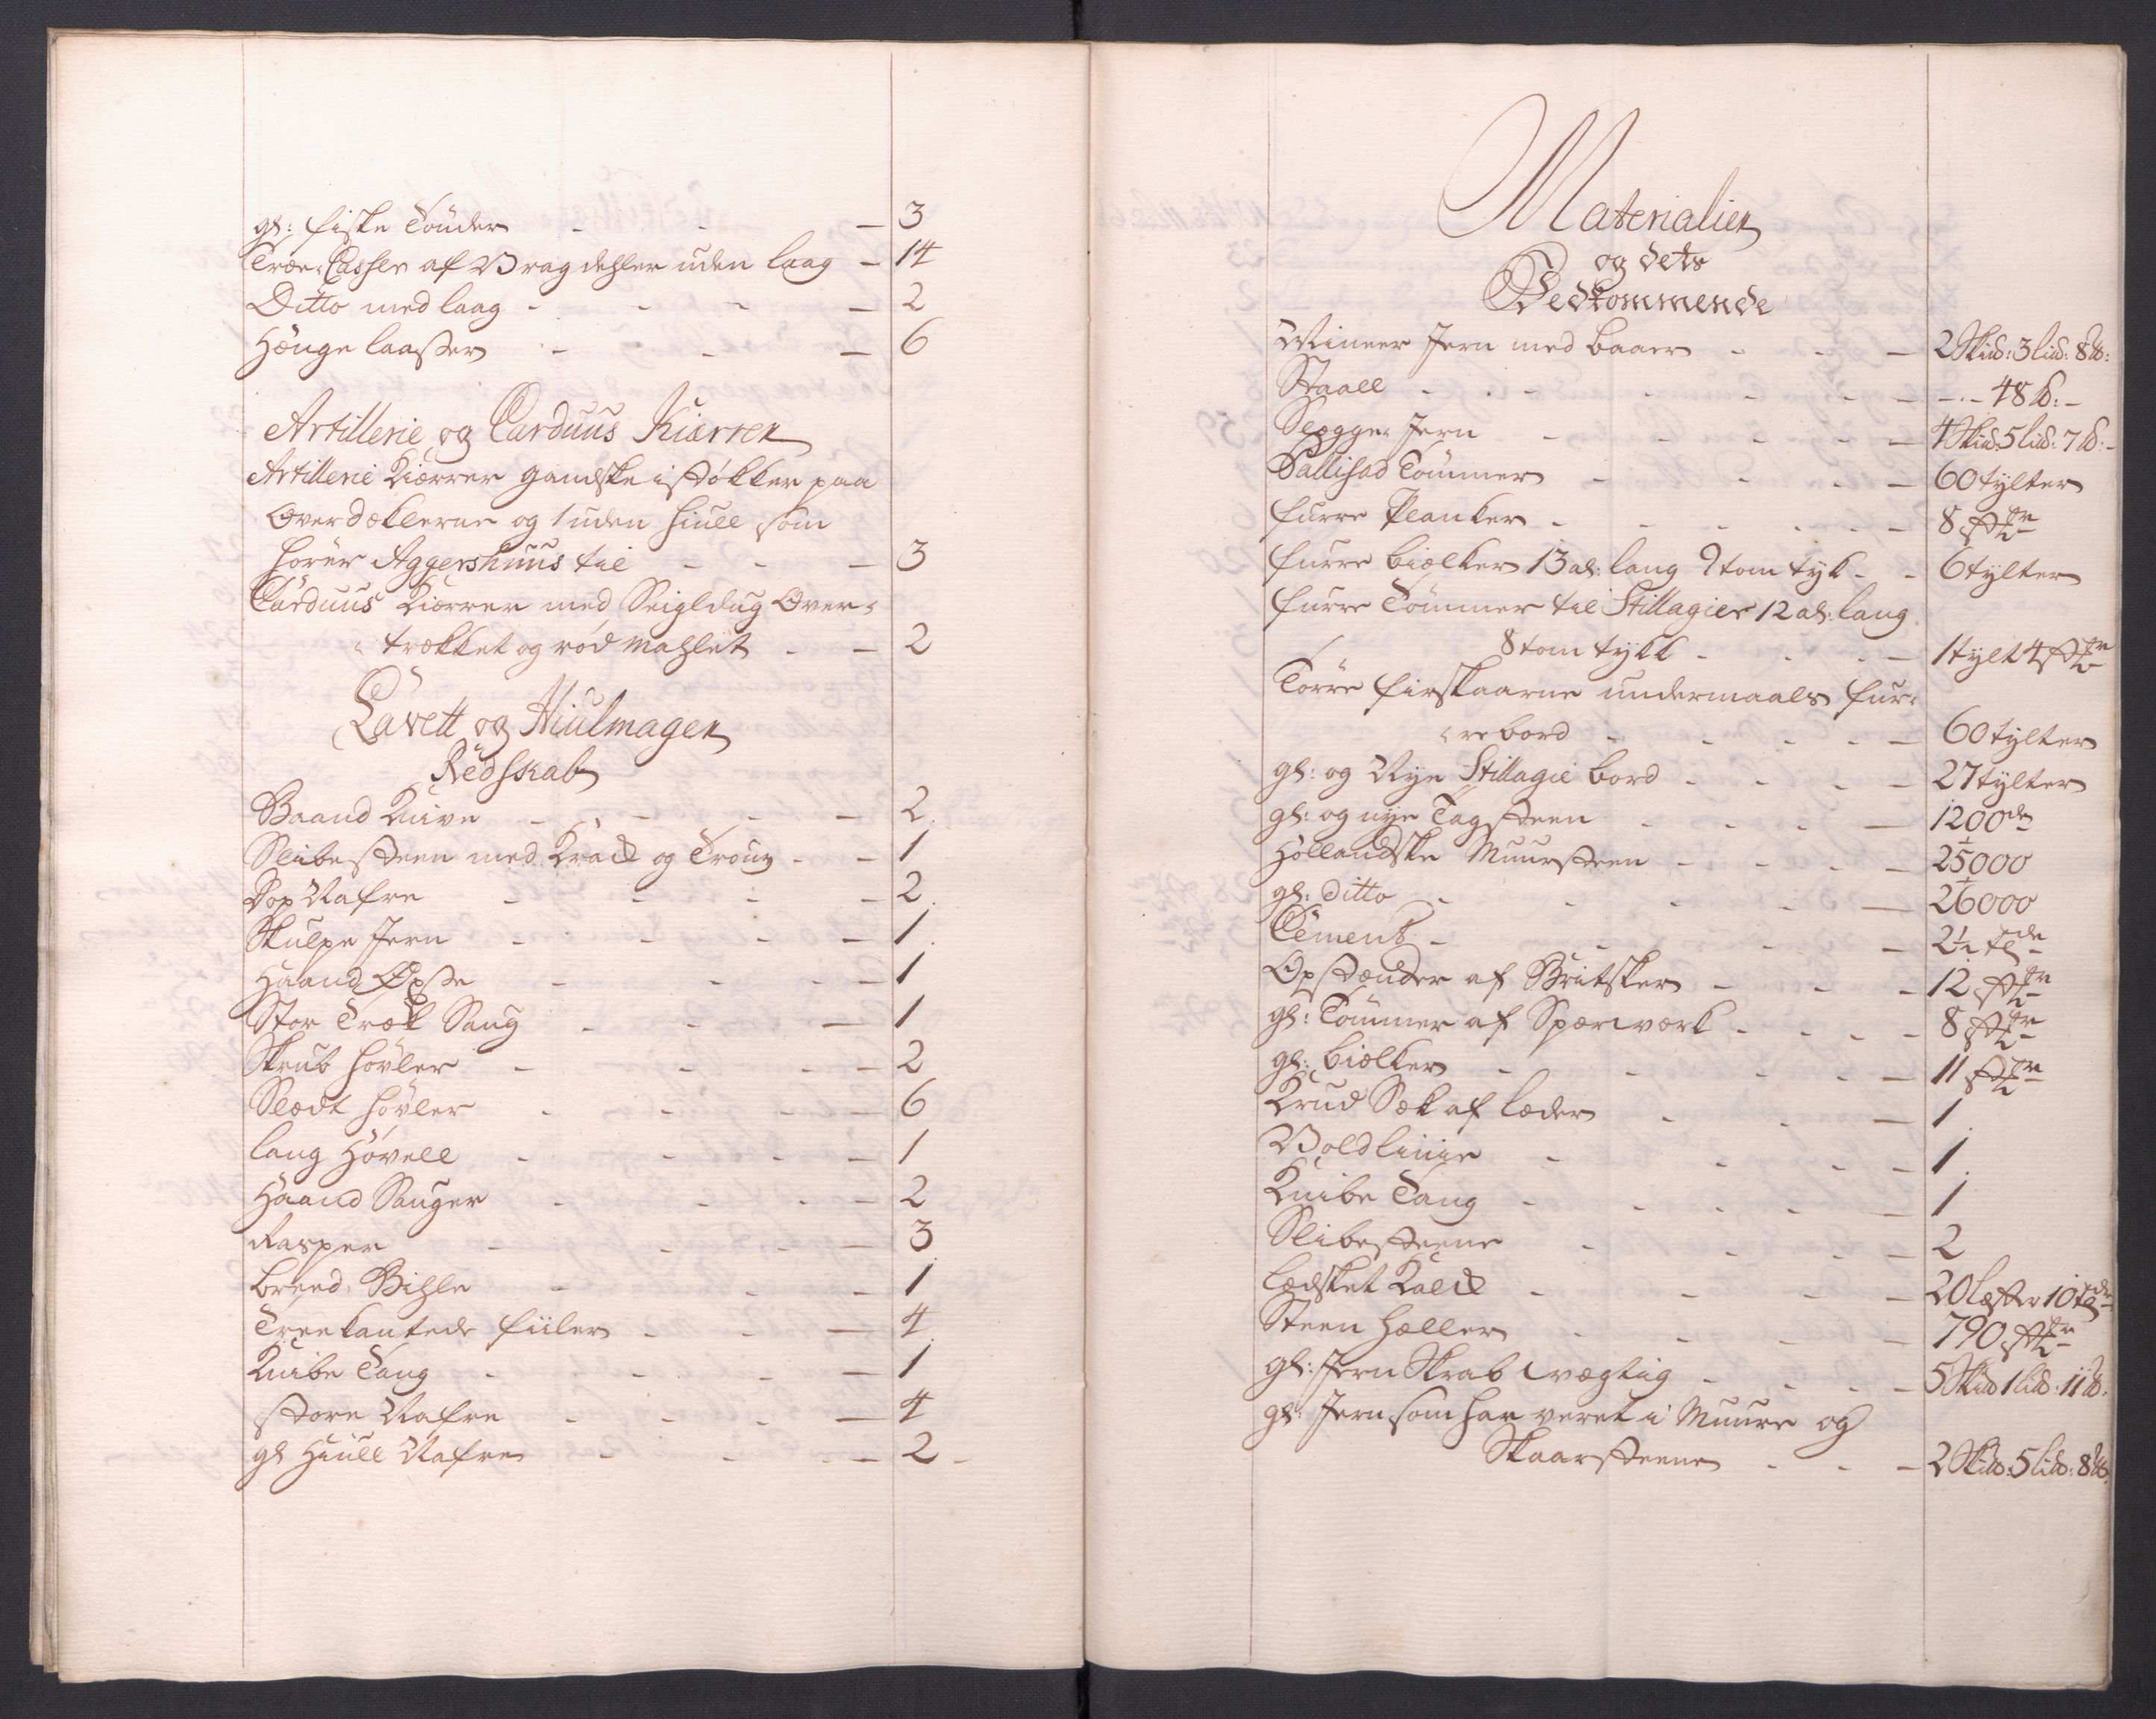 gl: fiske Tönder - - - 3
Træe Casser af Vrag dehler uden laag - 14
Ditto med laag - - - - 2
Hænge laasser - - - 6
Artillerie og Carduus Kiærrer
Artillerie Kiærrer gandske i støkker paa
Overdeklerne og 1 uden Hiull som
hører Aggershuus til - - - 3
Carduus Kiærrer med Seigldug Over=
=trekket og rød mahlet - - 2
Lavett og Hiulmager
Redskab
Baand Knive - - - - 2
Slibesteen med Kraek og Troug - - 1
Dop Nafre - - - - 2
Skulpe Jern - - - - 1
Haand Øxse - - - - 1
Stor Træk Saug - - - 1
Skrub høvler - - - - 2
Slædt høvler - - - - 6
lang Høvell - - - - 1
Haand Sauger - - - - 2
Rasper - - - - 3
breed Bihle - - - - 1
Treekantede fiiler - - - 4
Knibe Tang - - - - 1
store Nafre - - - - 4
gl Hiull Nafre - - - - 2 -
Materialier
og dets
Vedkommende
Mineer Jern med baaer - - - 2 Skud: 3 liud: 8 lb:
Staall - - - - - - - 48 lb: -
Slegger Jern - - - - - 4 Skud: 5 liud: 7 lb: -
Pallisad Tömmer - - - - 60 tylter
furre Planker - - - - - - 8 stkr
furre bielker 13 al: lang 9 tom tyk - - 6 tylter
furre Tömmer til Stillagier 12 al: lang
8 tom tykk - - - - 1 tylt 4 stkr
Törre firskaarne undermaals fur=
=re bord - - - - - 60 tylter
gl: og Nye Stillagie bord - - - - 27 tylter
gl: og nye Tagsteen - - - - 1200de
Hollandske Muursteen - - - - 25000
gl: ditto - - - - - 26000
Cement - - - - 2½ tde
Opstænder af Britsker - - - 12 stkr
gl: Tömmer af Sperwerk - - - - 8 stkr
gl: bielker - - - - - 11 stkr
Krud Sæk af læder - - - 1
Voldlinie - - - - 1
Knibe Tang - - - - - 1
Slibesteene - - - - 2
lædsket Kalck - - - - 20 læster 10 tde
Steen Heller - - - - 790 stkr
gl: Jern Skrab wegtig - - - - 5 Skud 1 liud: 11 lb:
gl: Jern som har veret i Muure og
Skaarsteene - - - 2 Skud: 5 liud: 8 lb: